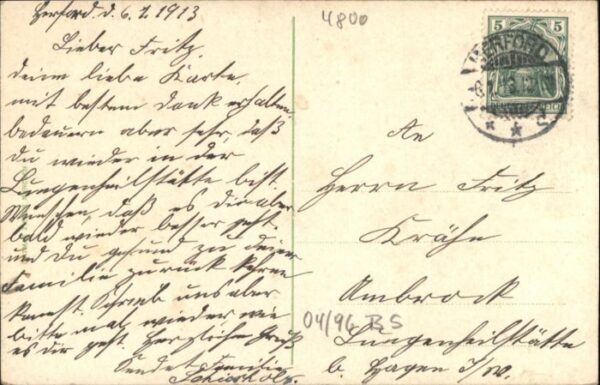 Herford. d. 6.1.1913
Lieber Fritz.
deine liebe Karte,
mit bestem Dank erhalten,
bedauern aber sehr, daß
Du wieder in der
Lungenheilstätte bist.
Wünschen, daß es dir aber
bald wieder besser geht.
und Du gesund zu deiner
Familie zurück kehren
kannst. Schreib uns aber
bitte mal wieder wie
es dir geht. Herzliche Grüß
sendet Familie
4800
5
HERFORD
An
Herrn Fritz
Krähe
Ambrock
04/96 BS
Lungenheilstätte
b. Hagen i/W.